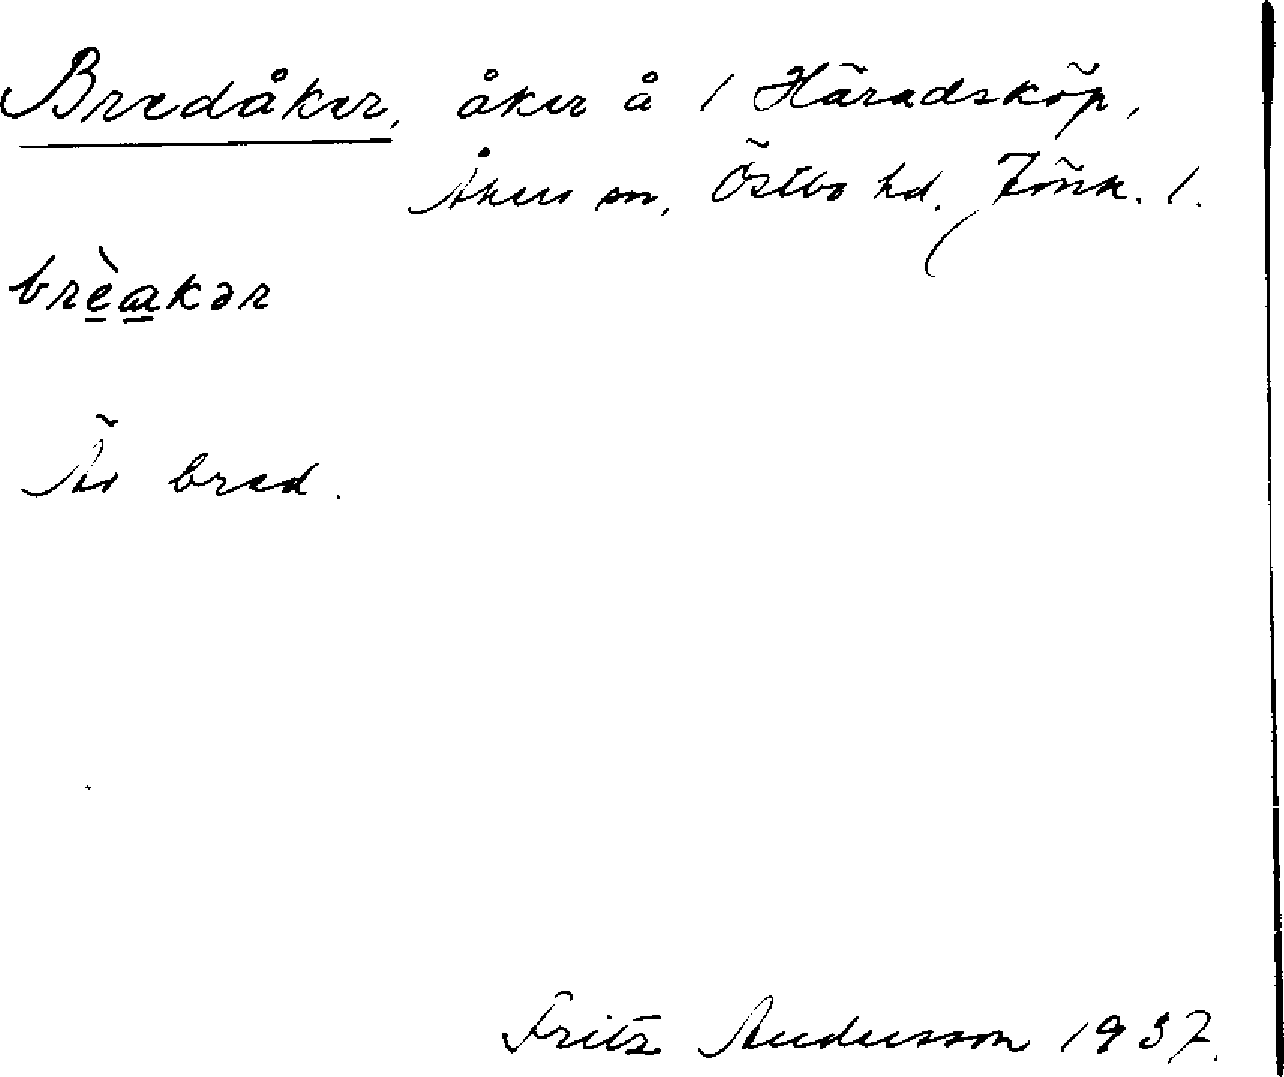 Bredåker, åker å 1 Häradsköp,
Åkers sn, Östbo hd. Jönk. l.
brèakər
Är bred.
Fritz Andersson 1937.